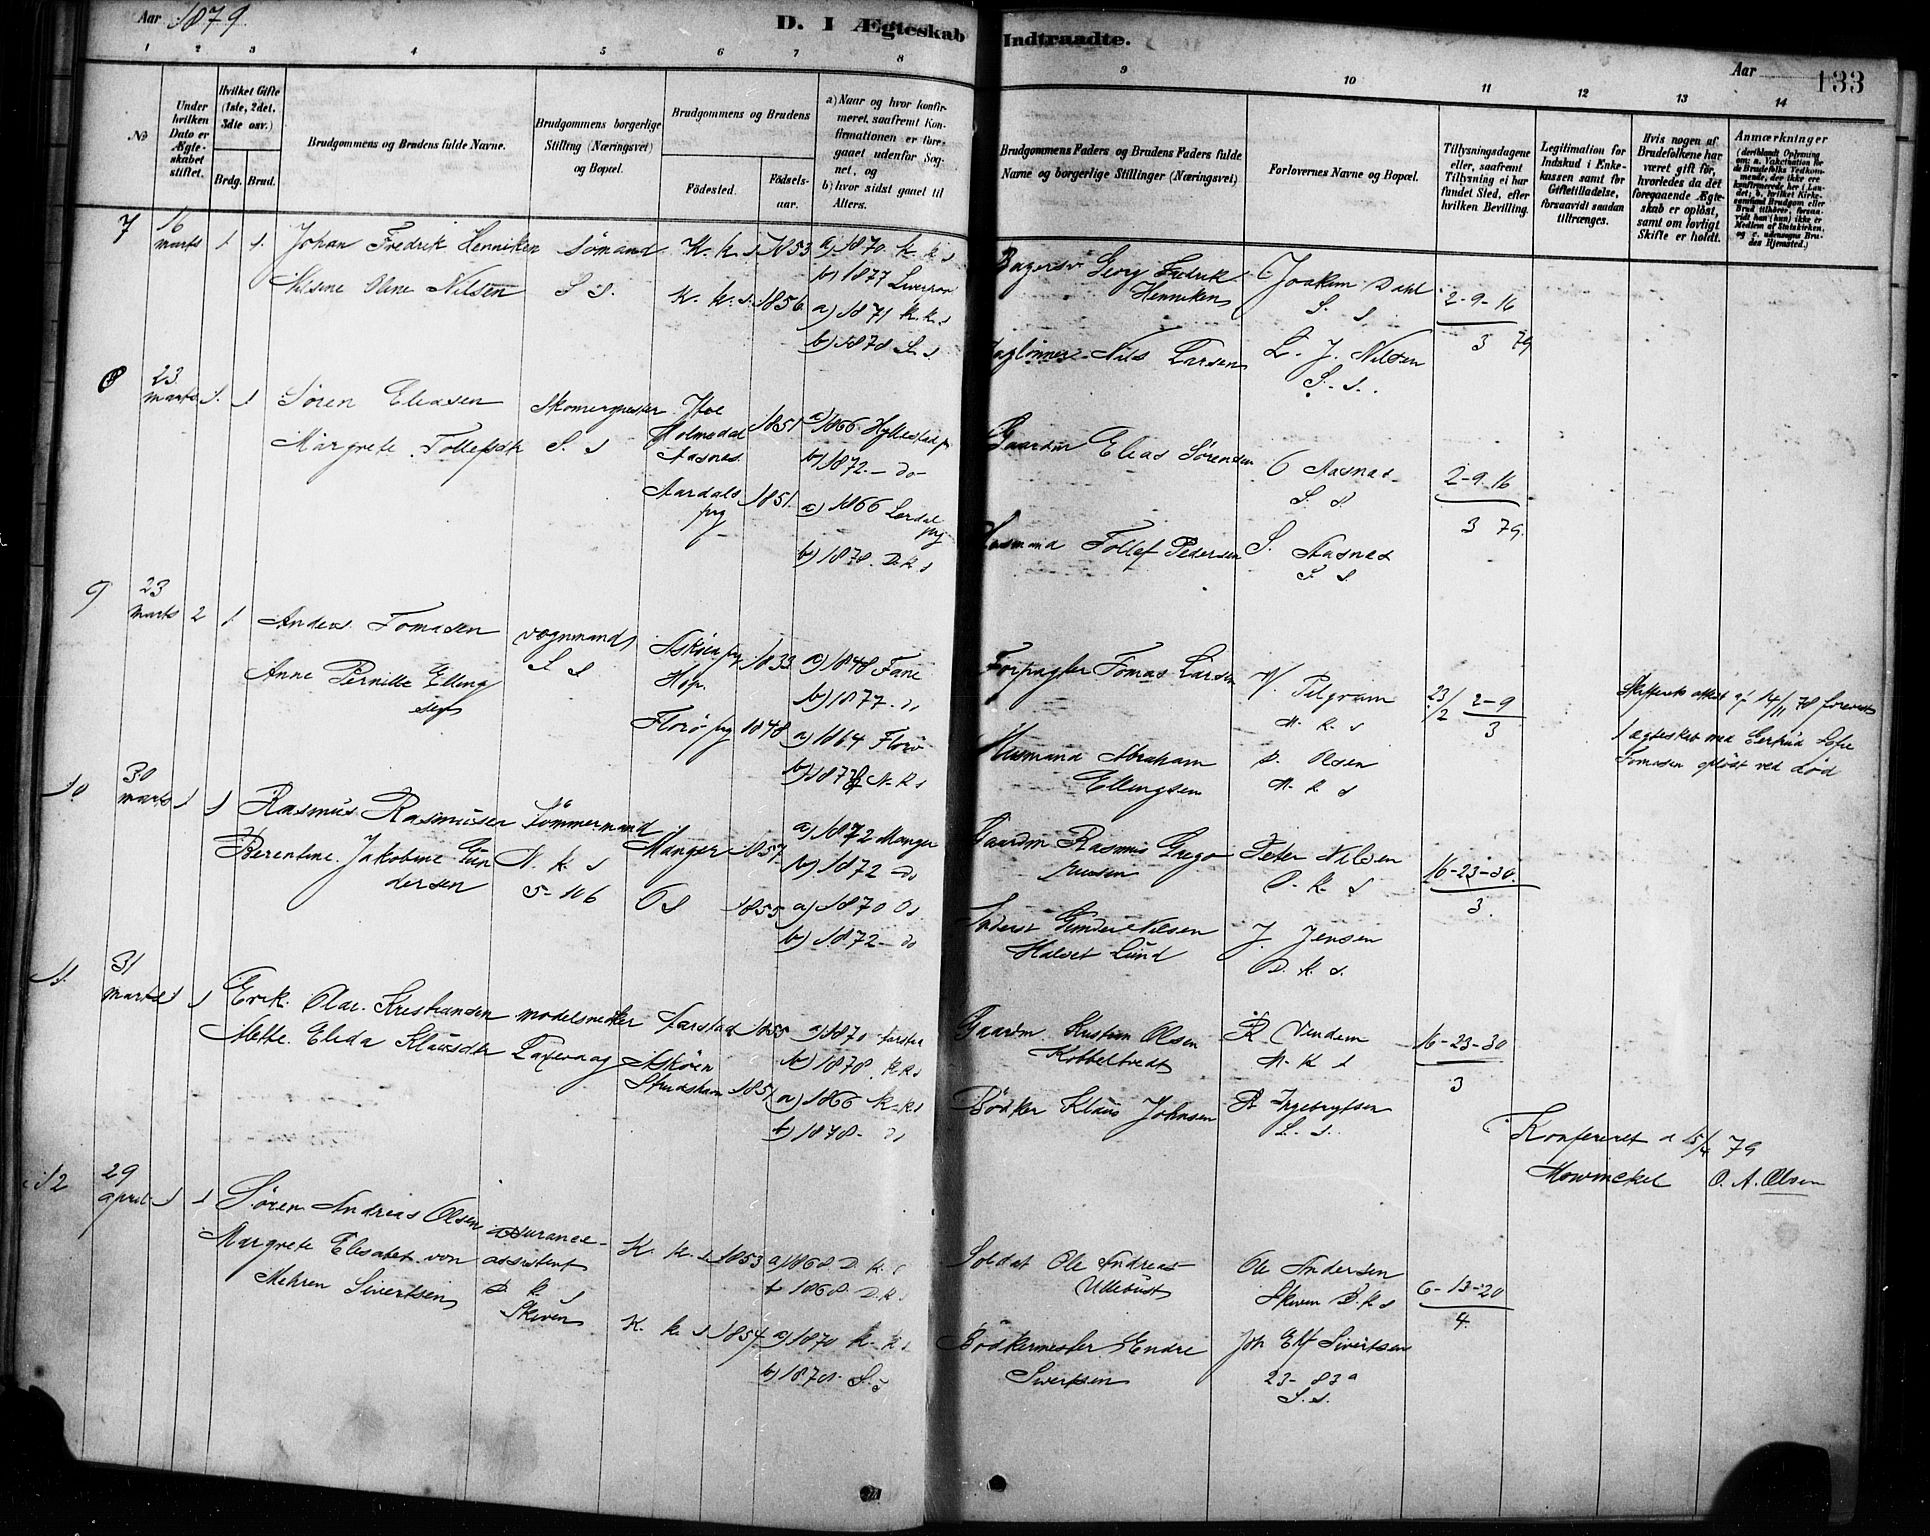 Aar 1879.
D. I Ægteskab Indtraadte.
Aar 133
1 2 3 4 5 6 7 8 9 10 11 12 13 14
No
Under hvilken Dato er Ægteskabet stiftet.
Hvilket Gifte (1ste, 2det, 3die osv.)
Brdg. Brud.
Brudgommens og Brudens fulde Navne.
Brudgommens borgerlige Stilling (Næringsvei) og Bopæl.
Brudgommens og Brudens
Fødested.
Fødselsaar.
a) Naar og hvor konfirmeret, saafremt Konfirmationen er foregaaet udenfor Sognet, og
b) hvor sidst gaaet til Alters.
Brudgommens Faders og Brudens Faders fulde Navne og borgerlige Stillinger (Næringsvei)
Forlovernes Navne og Bopæl.
Tillysningsdagene eller, saafremt Tillysning ei har fundet Sted, efter hvilken Bevilling.
Legitimation for Indskud i Enkekassen samt for Giftetilladelse, forsaavidt saadan tiltrænges.
Hvis nogen af Brudefolkene har været gift før, hvorledes da det foregaaende Ægteskab er opløst, samt om lovligt Skifte er holdt.
Anmærkninger
7 16 marts 1 1.
Johan Fredrik Henniken Sømand K. k. s 1853 a) 1870 k. k s
b) 1877
Nilsine Oline Nilsen S S. K. k. s. 1856. a) 1871 k. k. s
b) 1878 S. s
Georg Fredrik Henniken Joakim Dahl S. s.
Nils Larsen L. J. Nilsen S. s.
2-9-16
3 79
8 23 marts 1. 1
Søren Eliasen Skomagmester
Holmedal Aasnes 1851 a) 1866 Hyllestad
b) 1872 - do -
Margrete Tollefsdtr S. s Aardals prg 1851. a) 1866 Lerdal prg
b) 1878. D. k s
Gaardm Elias Sørensen Aasnas S. s.
Tollef Pedersen S. Aasnes S. s.
2-9-16
3 79.
9 23 marts 2 1.
Anders Tomasen vognmand Askøen prg Hop. 1833 a) 1848 Fane
S s b) 1877 - do
Anne Pernille Ellingsen Florø prg 1848 a) 1864 Florø
b) 1878 N. k s
Forpagter Tomas Larsen V. Pilgram N. k s
Husmand Abraham Ellingsen Olsen N. k s
23/2 2-9
3
14/11 78
ægteskab med Gertrud Sofie Tomasen opløst ved død
10 30 marts 1 1
Rasmus Rasmusen Tømmermand Manger 1857 a) 1872 Manger
b) 1872 do
Berentine Jakobine Gundersen N. k s 5-106 Os 1855 a) 1870 Os.
b) 1872 - do
Gaardm Rasmus Gregoriusen Peter Nilsen D. k. s
Gunder Nilsen Halvet Lund J. Jensen D. k. s.
16-23-30.
3.
11. 31 marts 1 1
Erik Olai Kristiansen modelsnedker 1855 a) 1870
b) 1878. k. k s
Mette Elida Klausdtr Laxevaag Askøen Strudshavn 1851 a) 1866 k. k s
b) 1878 - do
Gaardm. Kristian Olsen Kobbeltvedt R Vindem N. k s
Bødker Klaus Johnsen R Ingebrytsen L. s.
16-23-30
3
Konfereret 15/4 79
Mowinckel O. A. Olsen
12 29 april 1 1
Søren Andreas Olsen assurance-assistent D k s Skiven K. k. s 1853 a) 1868. D. k. s
b 1868. D. k s
Margrete Elisabet von Mehren Sivertsen K. k. s 1854. a) 1870 k. k s
b) 1870. S. s
Soldat Ole Andreas Udebust Ole Andersen Skiven D. k s
Bødkermester Endre Sivertsen Joh Elf Sivertsen 23- 83a S. s.
6-13-20
4.